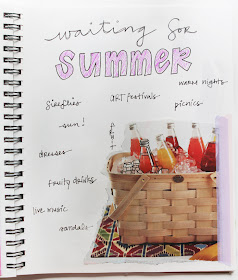 waiting for
SUMMER
warm nights
fireflies
ART festivals
picnics
sun!
dresses
fruity drinks
live music
sandals